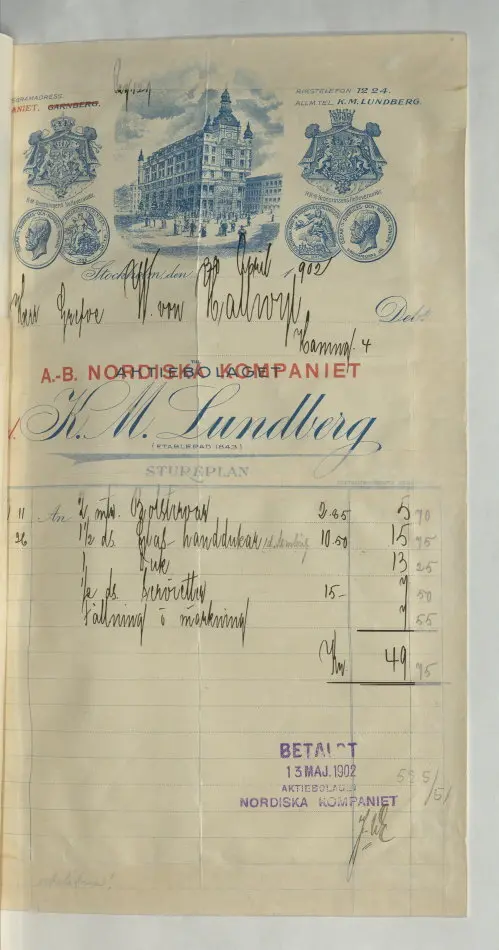 RIKSTELEFON 1224.
ANIET, GARNBERG.
ALLM.TEL. K.M. LUNDBERG.
Stockholm den 30 April 1902
Herr Grefve W. von Hallwyl Deb.
Hamng. 4
A.-B. NORDISKA KOMPANIET
AKTIEBOLAGET
K. M. Lundberg
(ETABLERAD 1843)
STUREPLAN
11 An 2 mtr. Bolstervar 2.85 5 70
26 1 1/2 ds. Glas handdukar 10.50 15 75
1 Duk 13 25
1/2 ds. Servietter 15- 7 50
Fållning o märkning 7 55
Kr 49 75
BETALDT
13 MAJ. 1902
AKTIEBOLAGET
NORDISKA KOMPANIET